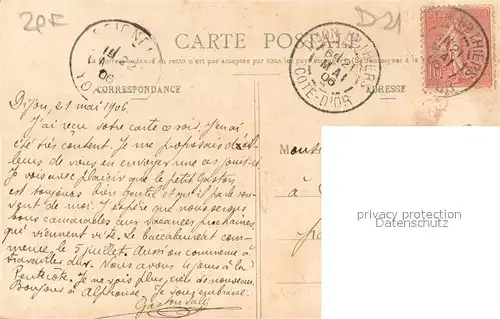 2PF
D-21
CARTE POSTALE
La correspondance du recto n'est pas acceptée par tous les pays
CORRESPONDANCE
ADRESSE
DIJON
COTE-D'OR
06
10
Dijon, 21 mai 1906.
J'ai reçu votre carte ce soir. J'en ai
été très content. Je me proposais d'ail-
leurs de vous en envoyer une ces jours-ci
Je vois avec plaisir que le petit Gaston
est toujours bien gentil et qu'il parle sou-
vent de moi. J'espère que nous serons
bons camarades aux vacances prochaines,
qui viennent vite. Le baccalauréat com-
mence le 5 juillet. Aussi on commence à
travailler dur. Nous avons 4 jours à la
Pentecôte. Je ne vois plus rien de nouveau.
Bonjour à Alphonse. Je vous embrasse.
Gaston
privacy protection
Datenschutz